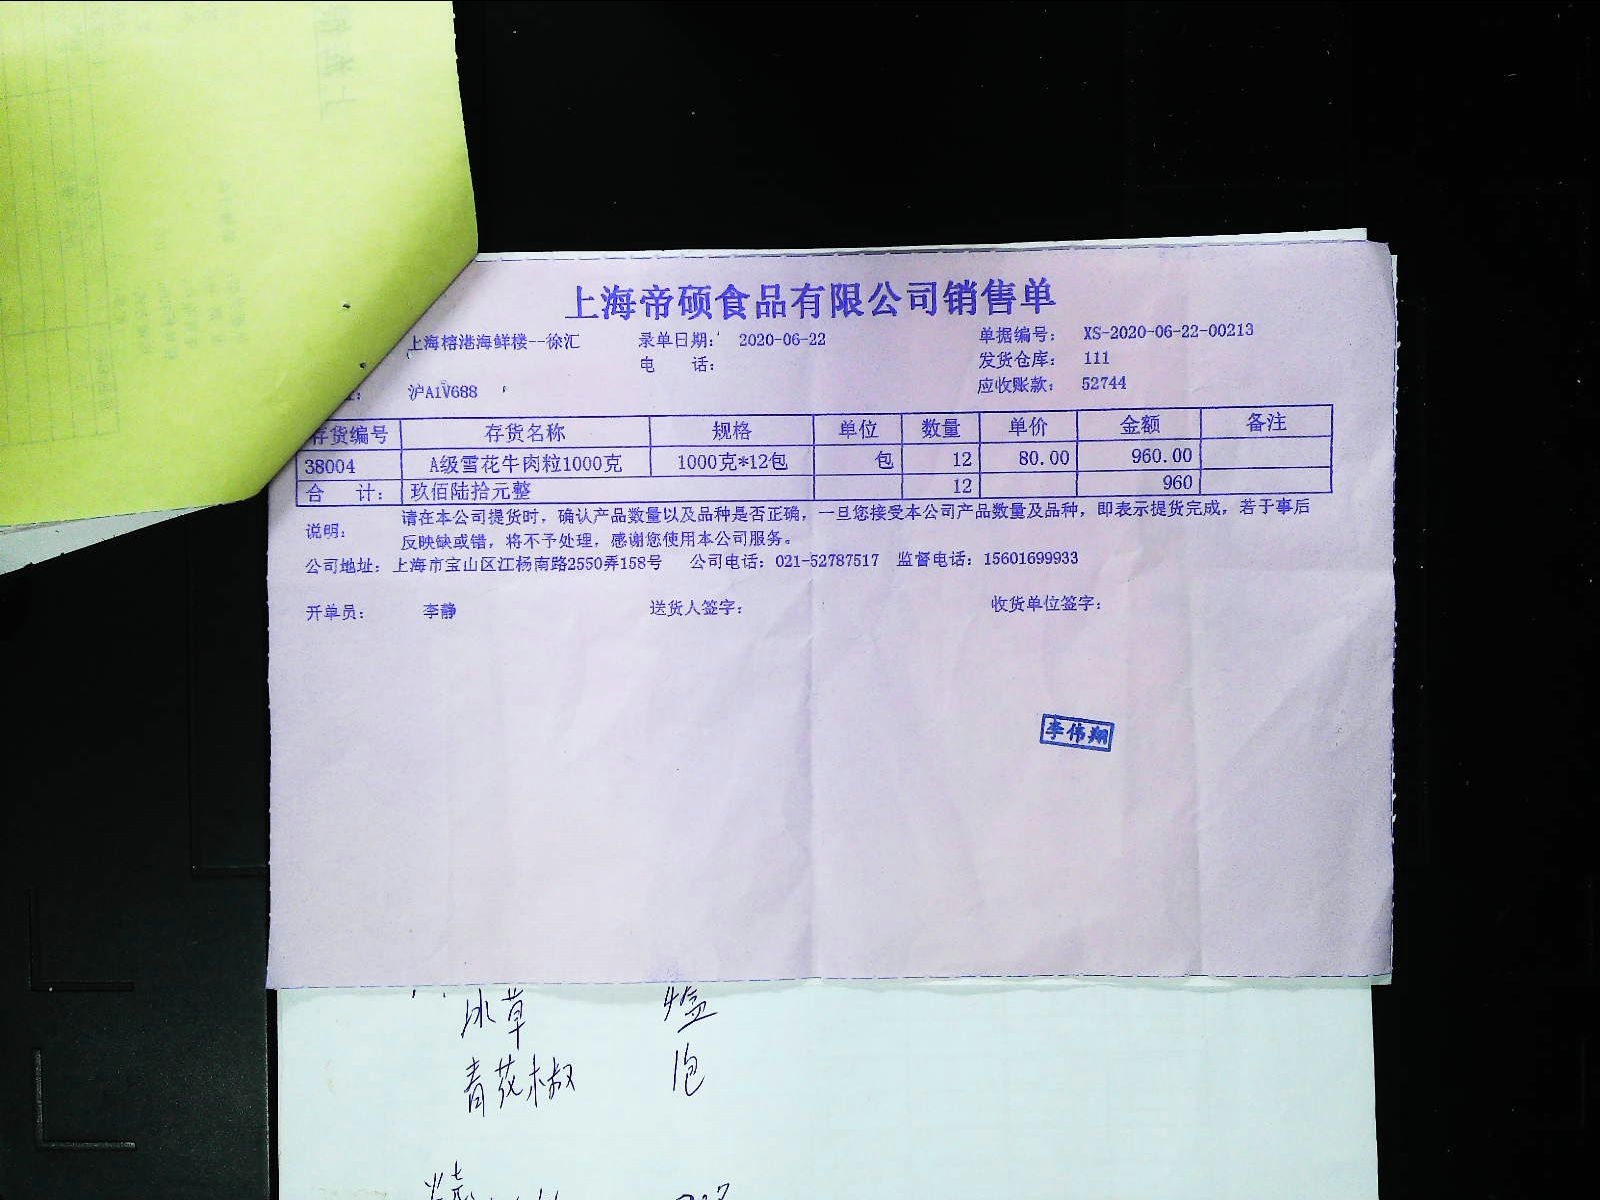 上海帝硕食品有限公司销售单
上海榕港海鲜楼--徐汇 录单日期: 2020-06-22 单据编号: XS-2020-06-22-00213
电 话: 发货仓库: 111
沪A1V688 应收账款: 52744
存货编号 存货名称 规格 单位 数量 单价 金额 备注
38004 A级雪花牛肉粒1000克 1000克*12包 包 12 80.00 960.00
合 计: 玖佰陆拾元整 12 960
说明: 请在本公司提货时，确认产品数量以及品种是否正确，一旦您接受本公司产品数量及品种，即表示提货完成，若于事后
反映缺或错，将不予处理，感谢您使用本公司服务。
公司地址: 上海市宝山区江杨南路2550弄158号 公司电话: 021-52787517 监督电话: 15601699933
开单员: 李静 送货人签字: 收货单位签字:
李伟翔
冰草 4盒
青花椒 1包